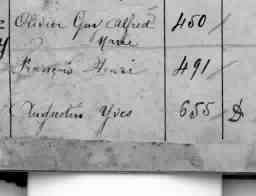 Olivier Guy Alfred 450 /
Marie
François Henri 491 /
Augustin Yves 655 / D